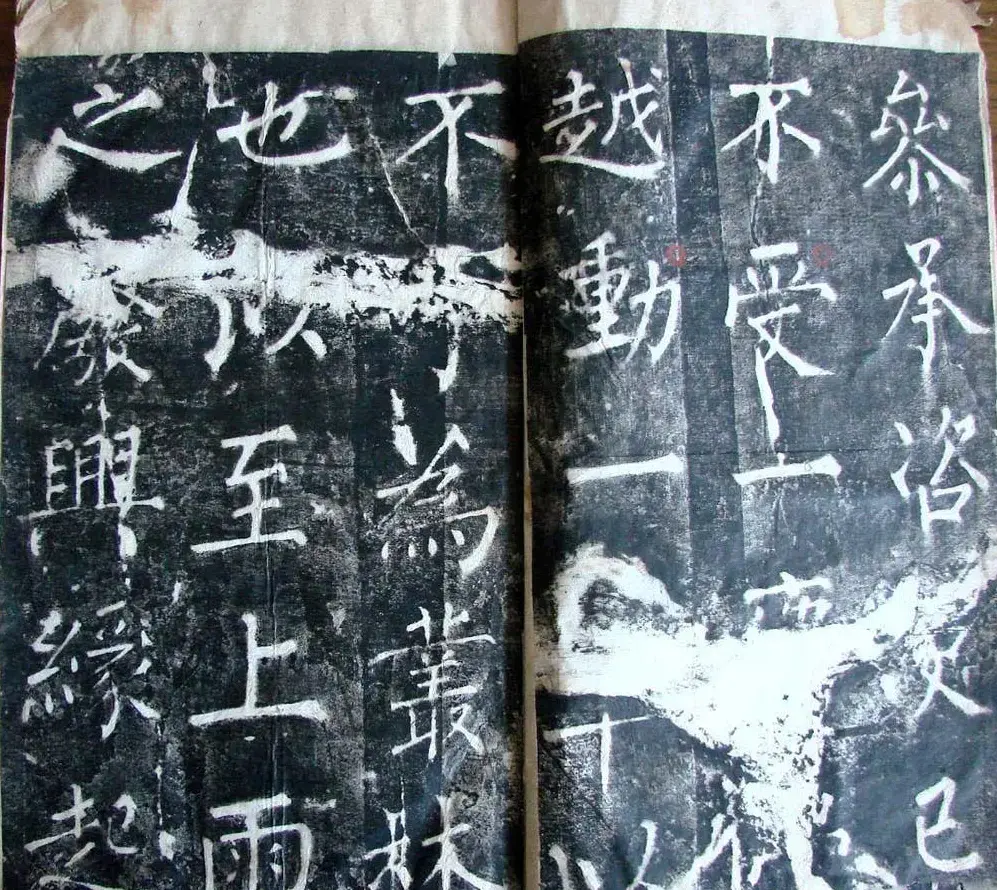 叅承咨已
不受一
越動一十以
不可為叢林
也以至上雨
之廢興緣起